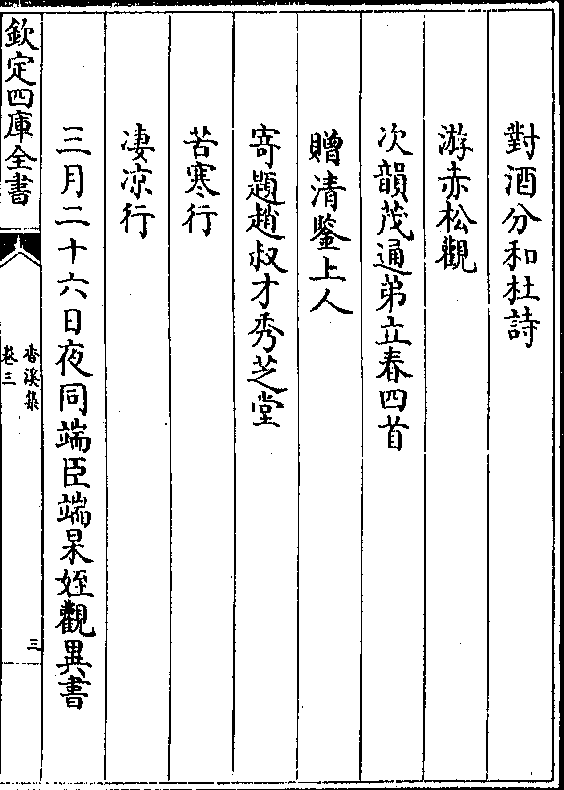 對酒分和杜詩
游赤松觀
次韻茂通弟立春四首
贈清鑒上人
寄題趙叔才秀芝堂
苦寒行
凄凉行
三月二十六日夜同端臣端杲姪觀異書
欽定四庫全書
香溪集
卷三
三